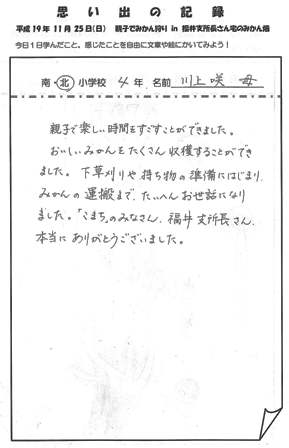 思い出の記録
平成19年11月25日(日) 親子でみかん狩り in 福井支所長さん宅のみかん畑
今日1日学んだこと、感じたことを自由に文章や絵にかいてみよう！
南・北 小学校 4年 名前 川上咲 母
親子で楽しい時間をすごすことができました。
おいしいみかんをたくさん収穫することができ
ました。下草刈りや持ち物の準備にはじまり、
みかんの運搬まで、たいへんお世話になり
ました。「こまち」のみなさん、福井支所長さん、
本当にありがとうございました。